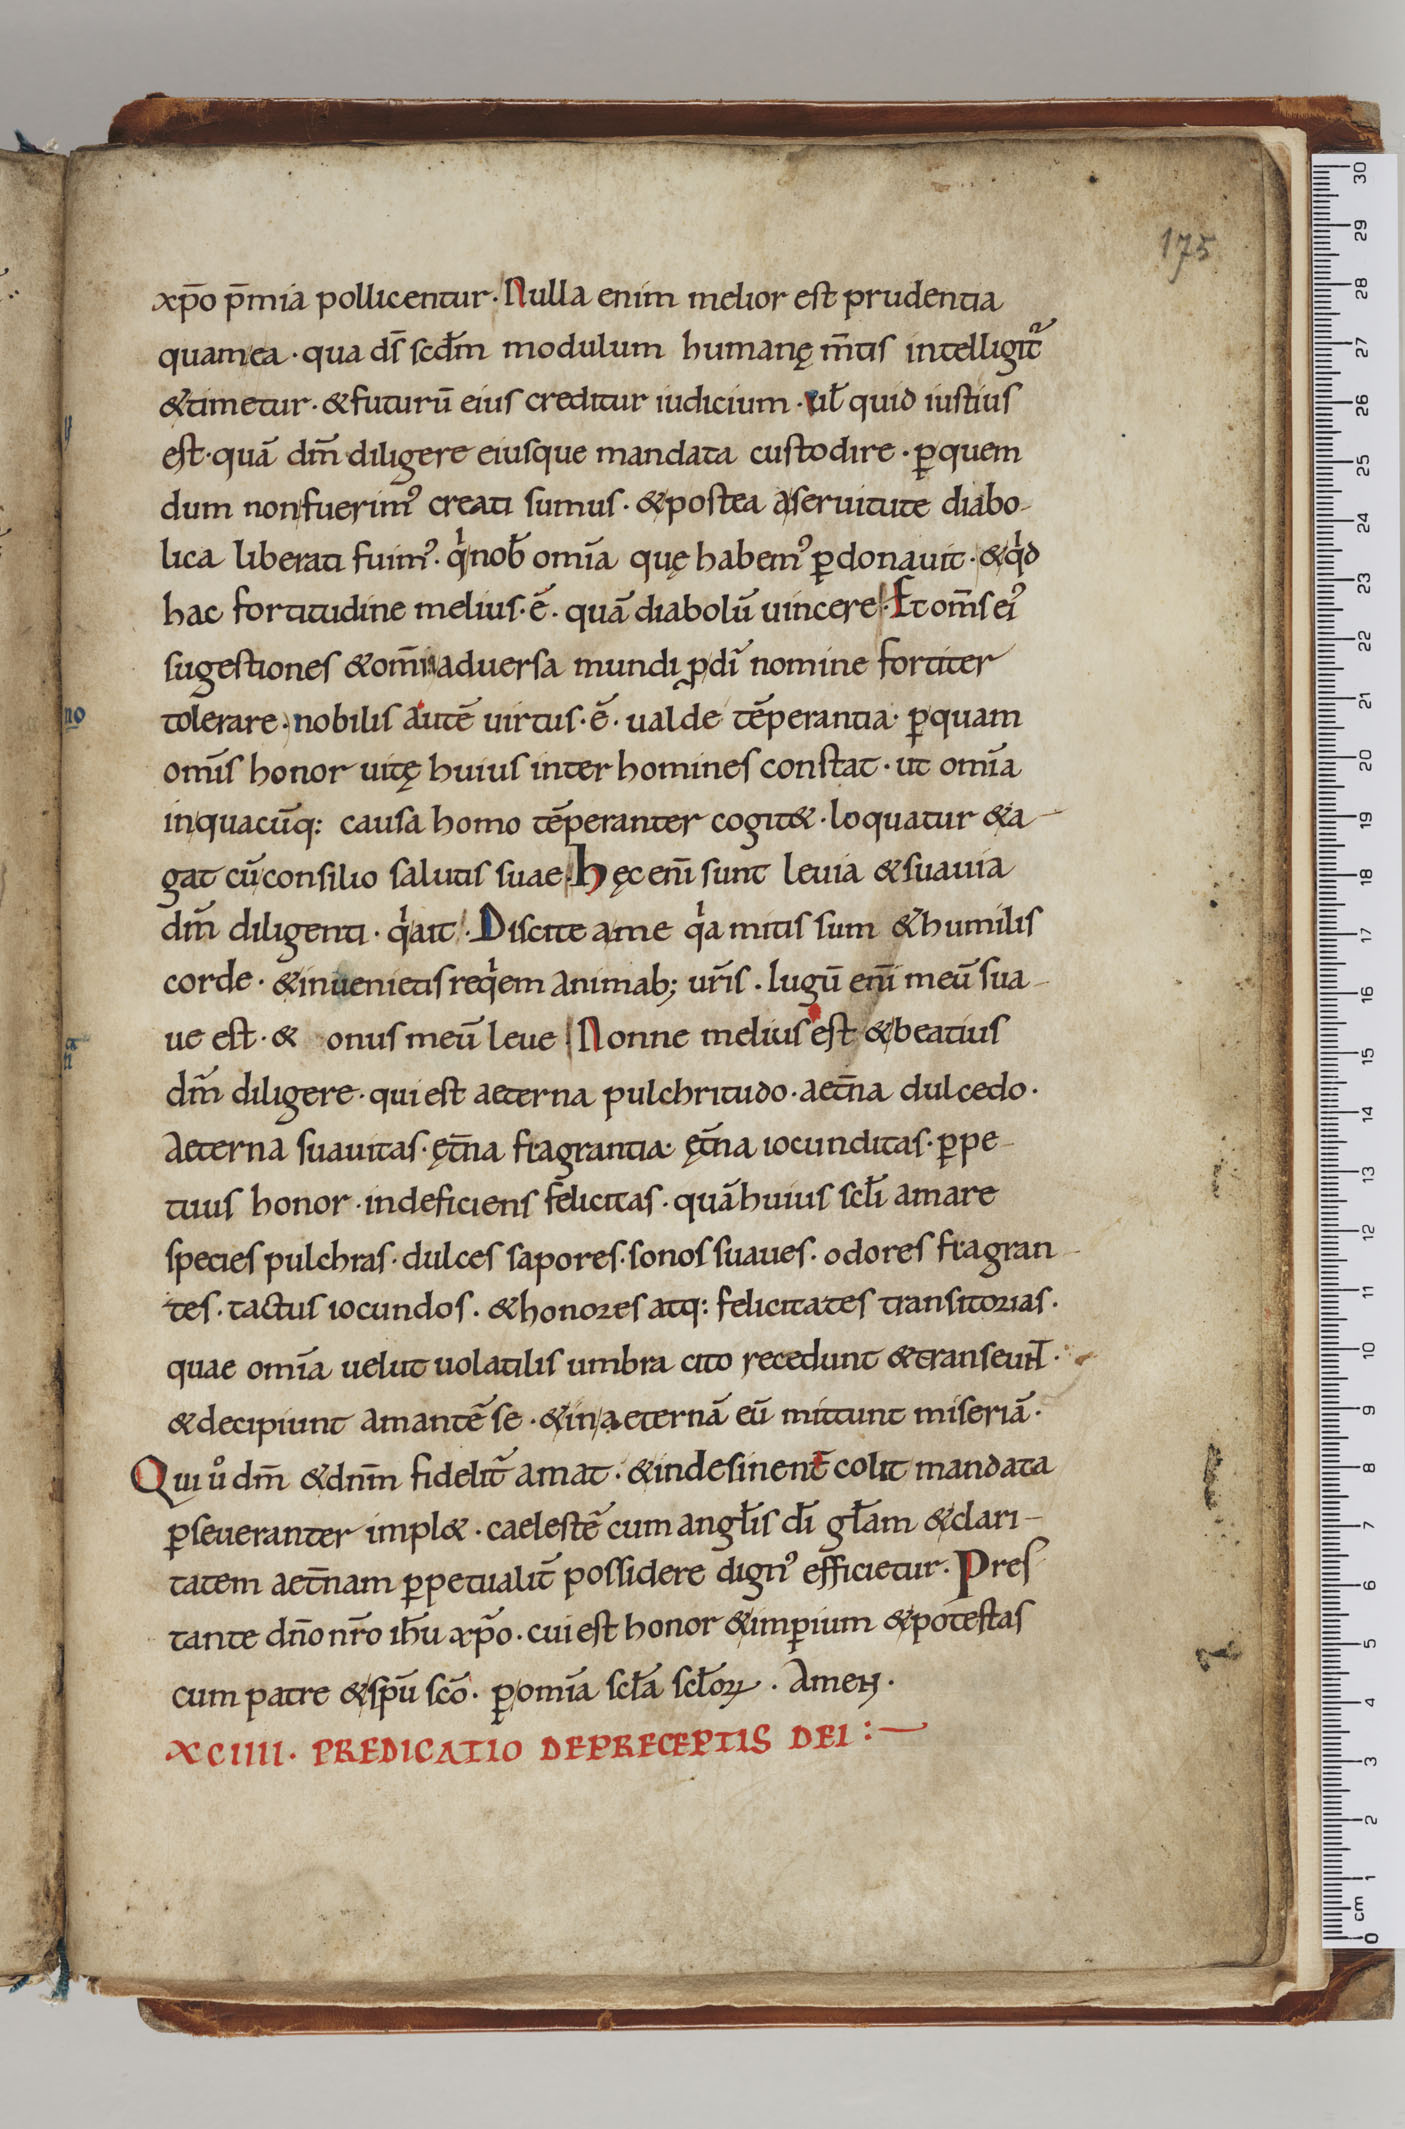 175
xp̄o p̄mia pollicentur. Nulla enim melior est prudentia
quam ea · qua ds̄ scd̄m modulum humanę m̄tis intelligit᷑
&timetur · &futurū eius creditur iudicium · ul̄ quid iustius
est · quā dm̄ diligere eiusque mandata custodire · ꝑquem
dum nonfuerim᷒ creati sumus · &postea aseruitute diabo-
lica liberati fuim᷒ · qͥ nob̄ omīa quę habem᷒ ꝑdonauit · &qͥd
hac fortitudine melius · ē · quā diabolū uincere · Et om̄s ei᷒
sugestiones &om̄ia aduersa mundi ꝓ dī nomine fortiter
tolerare · nobilis autē uirtus · ē · ualde tēperantia · ꝑquam
omīs honor uitę huius inter homines constat · ut omīa
inquacūq: causa homo tēperanter cogit& · loquatur &a-
gat cū consilio salutis suae · hęc enī sunt leuia &suauia
dm̄ diligenti · qͥ ait · Discite ame qͥa mitis sum &humilis
corde · &inuenietis reqͥem animab; ur̄is . Iugū enī meū sua-
ue est · & onus meū leue Nonne melius est &beatius
dm̄ diligere · qui est aeterna pulchritudo · aet̄na dulcedo ·
Aeterna suauitas · ęt̄na fragrantia · ęt̄na iocunditas · ꝑpe-
tuus honor · indeficiens felicitas · quā huius scl̄i amare
species pulchras · dulces sapores · sonos suaues · odores fragran-
tes · tactus iocundos · &honores atq: felicitates transitorias ·
quae omīa uelut uolatilis umbra cito recedunt &transeunt ·
&decipiunt amantē se · &in aeternā eū mittunt miseriā ·
Qui uͦ dm̄ &dnm̄ fidelit̄ amat · &indesinent̄ colit mandata
ꝑseueranter impl& · caelestē cum angl̄is dī gl̄am &clari-
tatem aet̄nam ꝑpetualit̄ possidere dign᷒ efficietur · Pres-
tante dn̄o nr̄o ih̄u xp̄o · cui est honor &imꝑium &potestas
cum patre &sp̄u scō · ꝑ omīa scl̄a scl̄oꝝ · Amen ·
XCIIII · PREDICATIO DE PRECEPTIS DEI :—